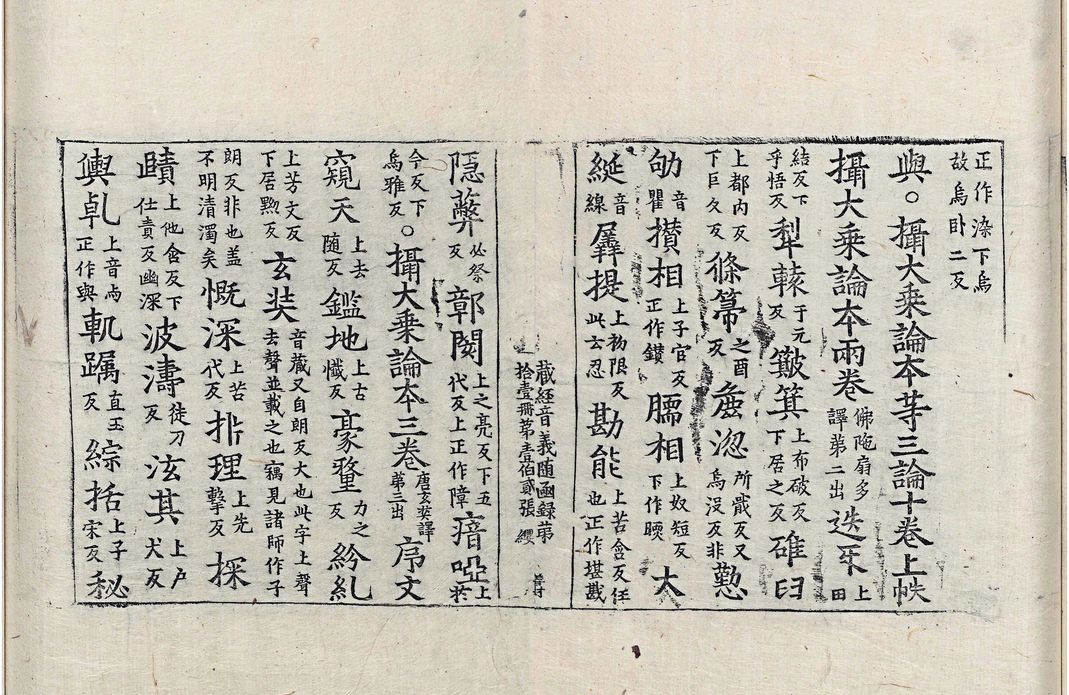 正作染下烏
故烏卧二反
與。攝大乘論本等三論十卷上帙
攝大乘論本兩卷 佛陁扇多
譯第二出 迭互 上田
結反下
乎悟反 犁轅 于元
反 簸箕 上布破反
下居之反 碓臼
上都内反
下巨久反 條箒 之酉
反 麁 所戢反又
烏没反非 懃
劬 音
瞿 攢相 上子官反
正作鑽 臑相 上奴短反
下作㬉 太
綖 音
線 羼提 上初限反
此云忍 勘能 上苦含反任
也正作堪戡
藏經音義随函録第
拾壹冊第壹伯貳張 纓
隐蔽 必祭
反 鄣閡 上之亮反下五
代反上正作障 瘖啞 上於
今反下
烏雅反 。攝大乘論本三卷 唐玄奘譯
第三出 序文
窺天 上去
随反 鑑地 上古
懺反 豪釐 力之
反 紛糺
上芳文反
下居黝反 玄奘 音藏又自朗反大也此字上聲
去聲並載之也竊見諸師作子
朗反非也盖
不明清濁矣 慨深 上苦
代反 排理 上先
擊反 採
賾 上他含反下
仕責反幽深 波濤 徒刀
反 泫其 上户
犬反
輿 上音
正作與 軌躅 直玉
反 綜括 上子
宋反 秘